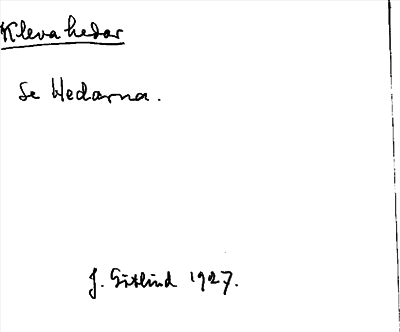 Kleva hedar
Se Hedarna.
J. Götlind 1927.